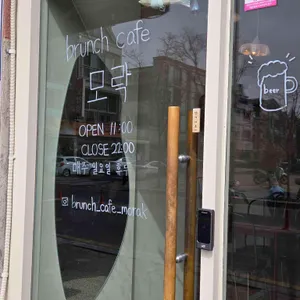 brunch cafe
모락
OPEN 11:00
CLOSE 22:00
매주 월요일 휴무
brunch_cafe_morak
beer